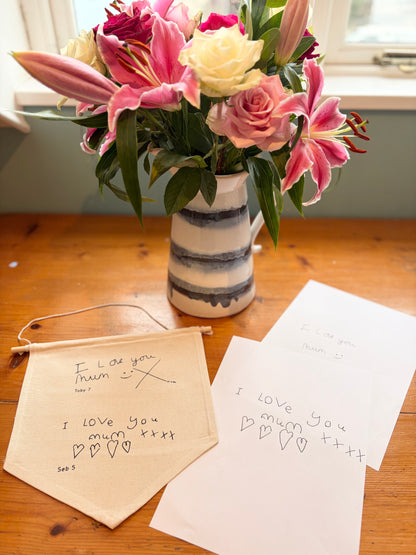 I Love you
mum :)
Toby 7
I LOVE you
mum xxxx
Seb 5
I love you
mum :)
I LOVE you
mum xxxx